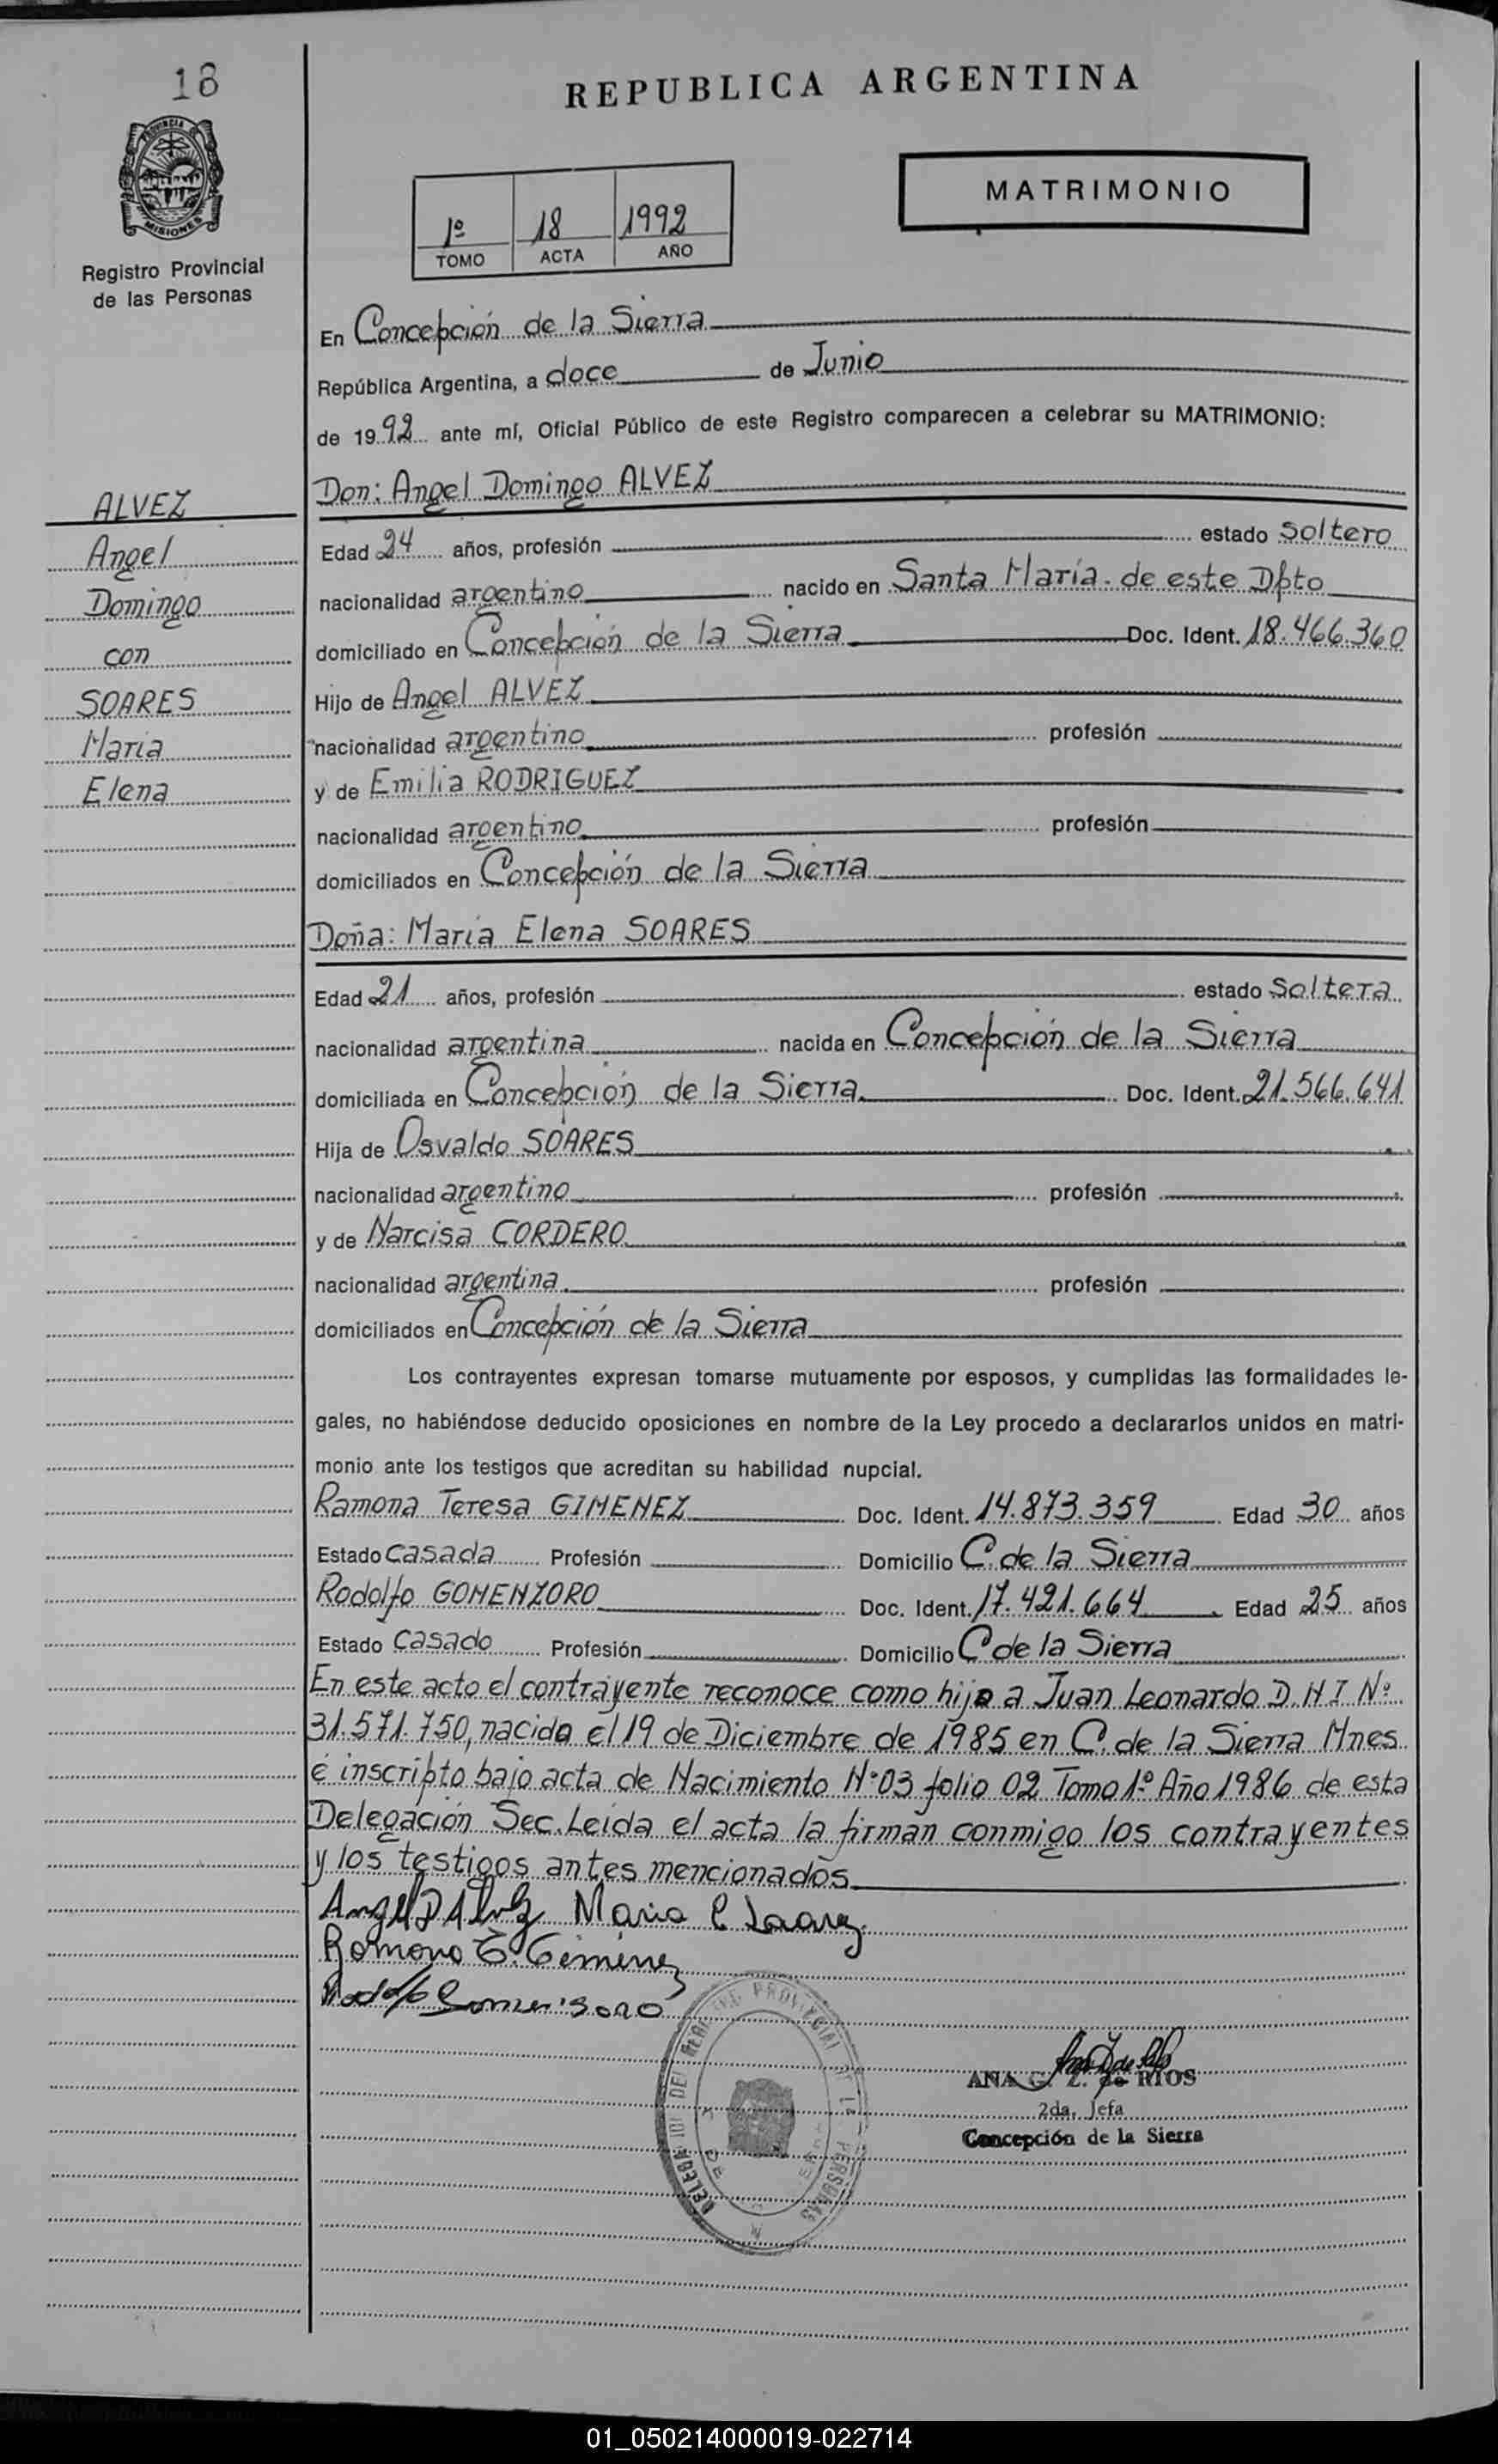 18
PROVINCIA DE
MISIONES
Registro Provincial
de las Personas
REPUBLICA ARGENTINA
MATRIMONIO
1º 18 1992
TOMO ACTA AÑO
En Concepción de la Sierra
República Argentina, a doce de Junio
de 1992 ante mí, Oficial Público de este Registro comparecen a celebrar su MATRIMONIO:
ALVEZ
Angel
Domingo
con
SOARES
Maria
Elena
Don: Angel Domingo ALVEZ
Edad 24 años, profesión estado soltero
nacionalidad argentino nacido en Santa María. de este Dpto
domiciliado en Concepción de la Sierra Doc. Ident. 18.466.360
Hijo de Angel ALVEZ
nacionalidad argentino profesión
y de Emilia RODRIGUEZ
nacionalidad argentino profesión
domiciliados en Concepción de la Sierra
Doña: Maria Elena SOARES
Edad 21 años, profesión estado Soltera
nacionalidad argentina nacida en Concepción de la Sierra
domiciliada en Concepción de la Sierra Doc. Ident. 21.566.641
Hija de Osvaldo SOARES
nacionalidad argentino profesión
y de Narcisa CORDERO
nacionalidad argentina profesión
domiciliados en Concepción de la Sierra
Los contrayentes expresan tomarse mutuamente por esposos, y cumplidas las formalidades le-
gales, no habiéndose deducido oposiciones en nombre de la Ley procedo a declararlos unidos en matri-
monio ante los testigos que acreditan su habilidad nupcial.
Ramona Teresa GIMENEZ Doc. Ident. 14.873.359 Edad 30 años
Estado casada Profesión Domicilio C. de la Sierra
Rodolfo GOMENZORO Doc. Ident. 17.421.664 Edad 25 años
Estado casado Profesión Domicilio C de la Sierra
En este acto el contrayente reconoce como hijo a Juan Leonardo D.N I Nº
31.571.750, nacido el 19 de Diciembre de 1985 en C. de la Sierra Mnes
é inscripto bajo acta de Nacimiento Nº 03 folio 02 Tomo 1º Año 1986 de esta
Delegación Sec. Leida el acta la firman conmigo los contrayentes
y los testigos antes mencionados
Angel D Alvez Maria E Soarez
Ramona T. Gimenez
Rodolfo Gomensoro
ANA G. Z. de RIOS
2da. Jefa
Concepción de la Sierra
01_050214000019-022714